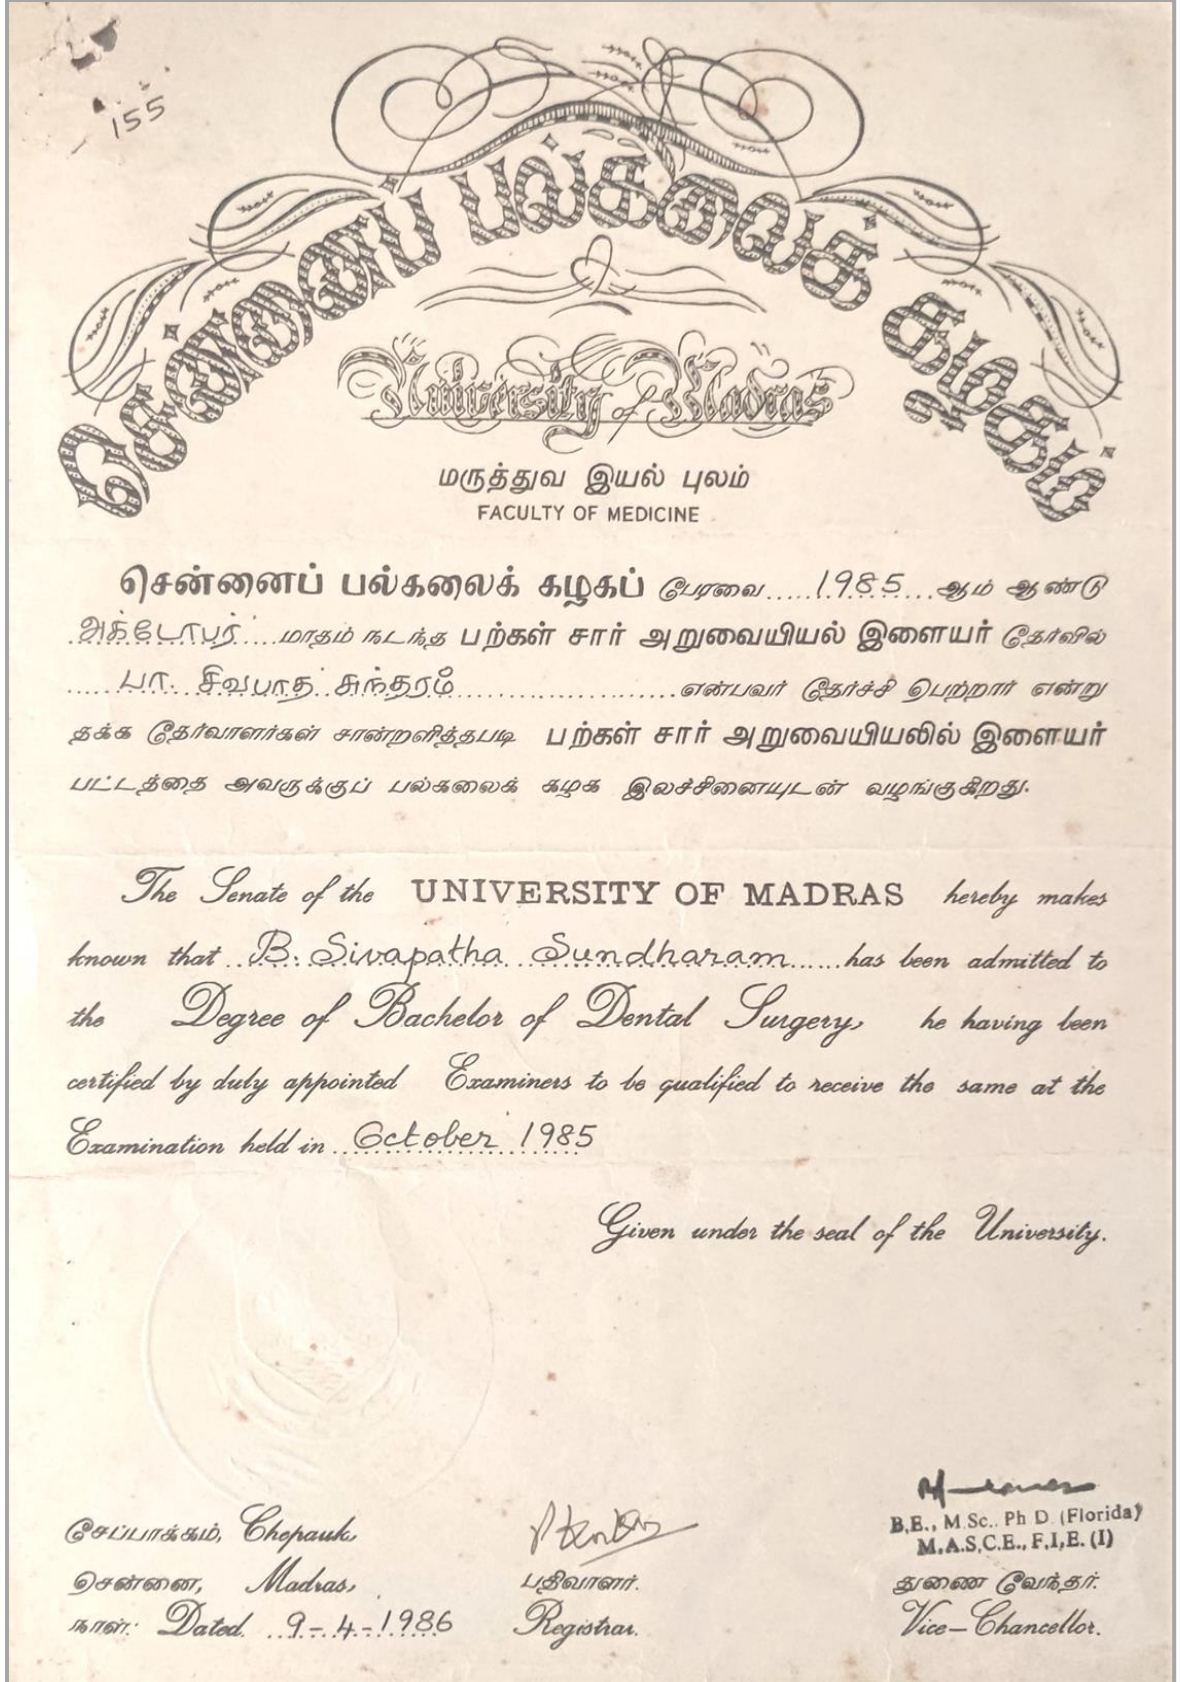 155
சென்னைப் பல்கலைக் கழகம்
University of Madras
மருத்துவ இயல் புலம்
FACULTY OF MEDICINE
சென்னைப் பல்கலைக் கழகப் பேரவை.....1985...ஆம் ஆண்டு
அக்டோபர்....மாதம் நடந்த பற்கள் சார் அறுவையியல் இளையர் தேர்வில்
......பா. சிவபாத சுந்தரம்......................என்பவர் தேர்ச்சி பெற்றார் என்று
தக்க தேர்வாளர்கள் சான்றளித்தபடி பற்கள் சார் அறுவையியலில் இளையர்
பட்டத்தை அவருக்குப் பல்கலைக் கழக இலச்சினையுடன் வழங்குகிறது.
The Senate of the UNIVERSITY OF MADRAS hereby makes
known that ..B. Sivapatha Sundharam......has been admitted to
the Degree of Bachelor of Dental Surgery, he having been
certified by duly appointed Examiners to be qualified to receive the same at the
Examination held in ..October 1985
Given under the seal of the University.
B.E., M.Sc., Ph.D. (Florida)
M.A.S.C.E., F.I.E. (I)
சேப்பாக்கம், Chepauk,
சென்னை, Madras, பதிவாளர். துணை வேந்தர்.
நாள்: Dated. ..9-4-1986 Registrar. Vice-Chancellor.